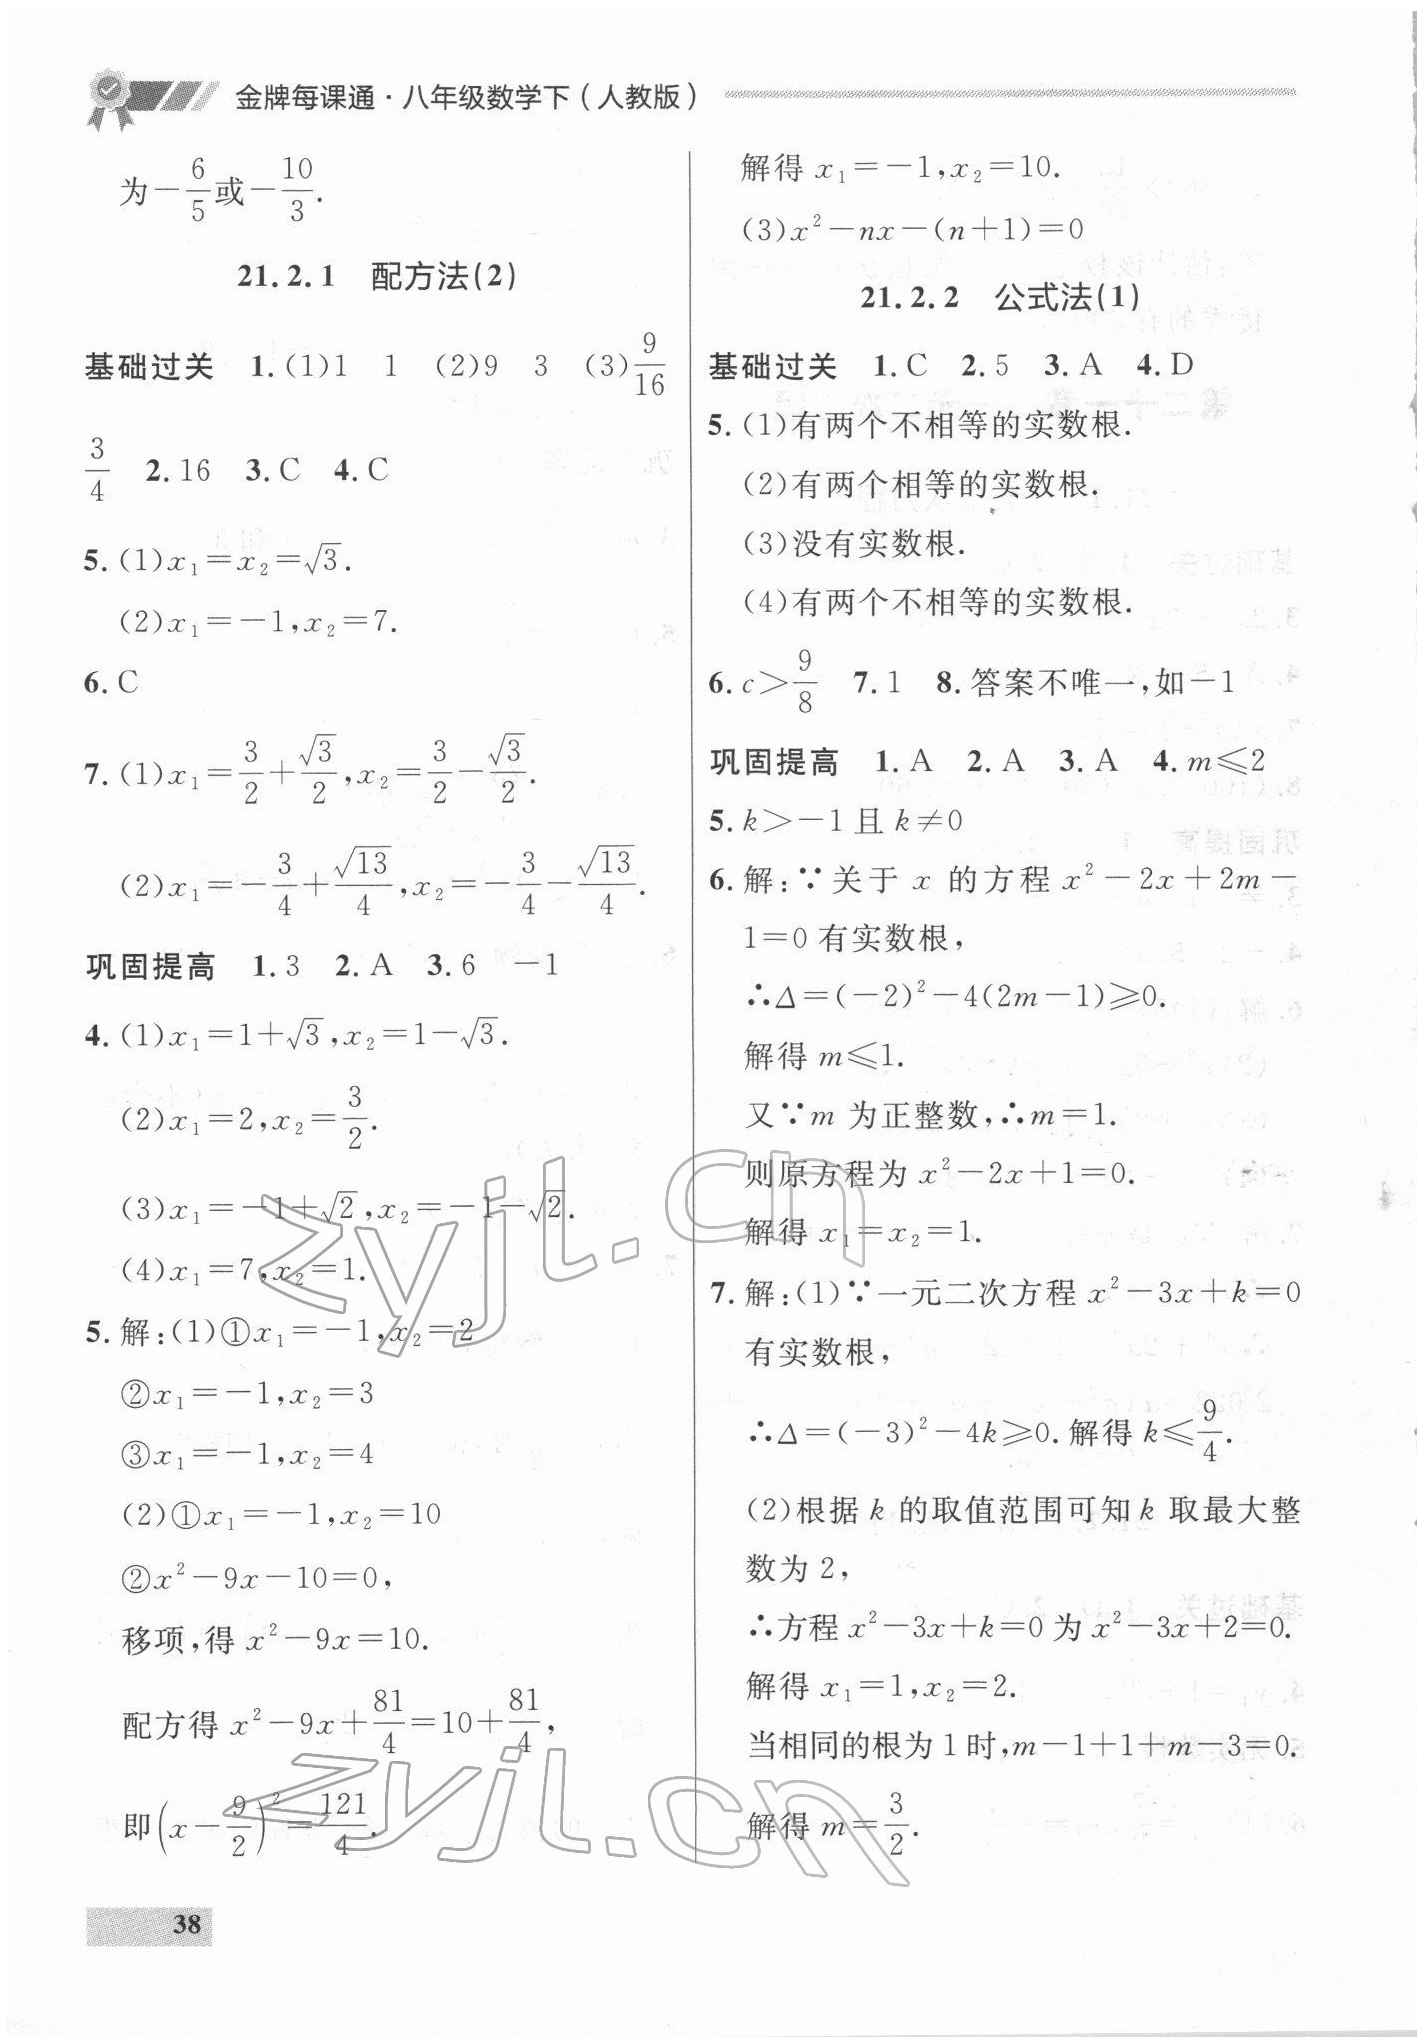 金牌每课通·八年级数学下(人教版)
为-6/5或-10/3.
21.2.1 配方法(2)
基础过关 1.(1)1 1 (2)9 3 (3)9/16
3/4 2.16 3.C 4.C
5.(1)x₁=x₂=√3.
(2)x₁=-1,x₂=7.
6.C
7.(1)x₁=3/2+√3/2,x₂=3/2-√3/2.
(2)x₁=-3/4+√13/4,x₂=-3/4-√13/4.
巩固提高 1.3 2.A 3.6 -1
4.(1)x₁=1+√3,x₂=1-√3.
(2)x₁=2,x₂=3/2.
(3)x₁=-1+√2,x₂=-1-√2.
(4)x₁=7,x₂=1.
5.解:(1)①x₁=-1,x₂=2
②x₁=-1,x₂=3
③x₁=-1,x₂=4
(2)①x₁=-1,x₂=10
②x²-9x-10=0,
移项,得 x²-9x=10.
配方得 x²-9x+81/4=10+81/4,
即(x-9/2)²=121/4.
38
解得 x₁=-1,x₂=10.
(3)x²-nx-(n+1)=0
21.2.2 公式法(1)
基础过关 1.C 2.5 3.A 4.D
5.(1)有两个不相等的实数根.
(2)有两个相等的实数根.
(3)没有实数根.
(4)有两个不相等的实数根.
6.c>9/8 7.1 8.答案不唯一,如-1
巩固提高 1.A 2.A 3.A 4.m≤2
5.k>-1且 k≠0
6.解:∵关于 x 的方程 x²-2x+2m-
1=0 有实数根,
∴Δ=(-2)²-4(2m-1)≥0.
解得 m≤1.
又∵m 为正整数,∴m=1.
则原方程为 x²-2x+1=0.
解得 x₁=x₂=1.
7.解:(1)∵一元二次方程 x²-3x+k=0
有实数根,
∴Δ=(-3)²-4k≥0.解得 k≤9/4.
(2)根据 k 的取值范围可知 k 取最大整
数为 2,
∴方程 x²-3x+k=0 为 x²-3x+2=0.
解得 x₁=1,x₂=2.
当相同的根为 1 时,m-1+1+m-3=0.
解得 m=3/2.
zyjl.cn
zyjl.cn